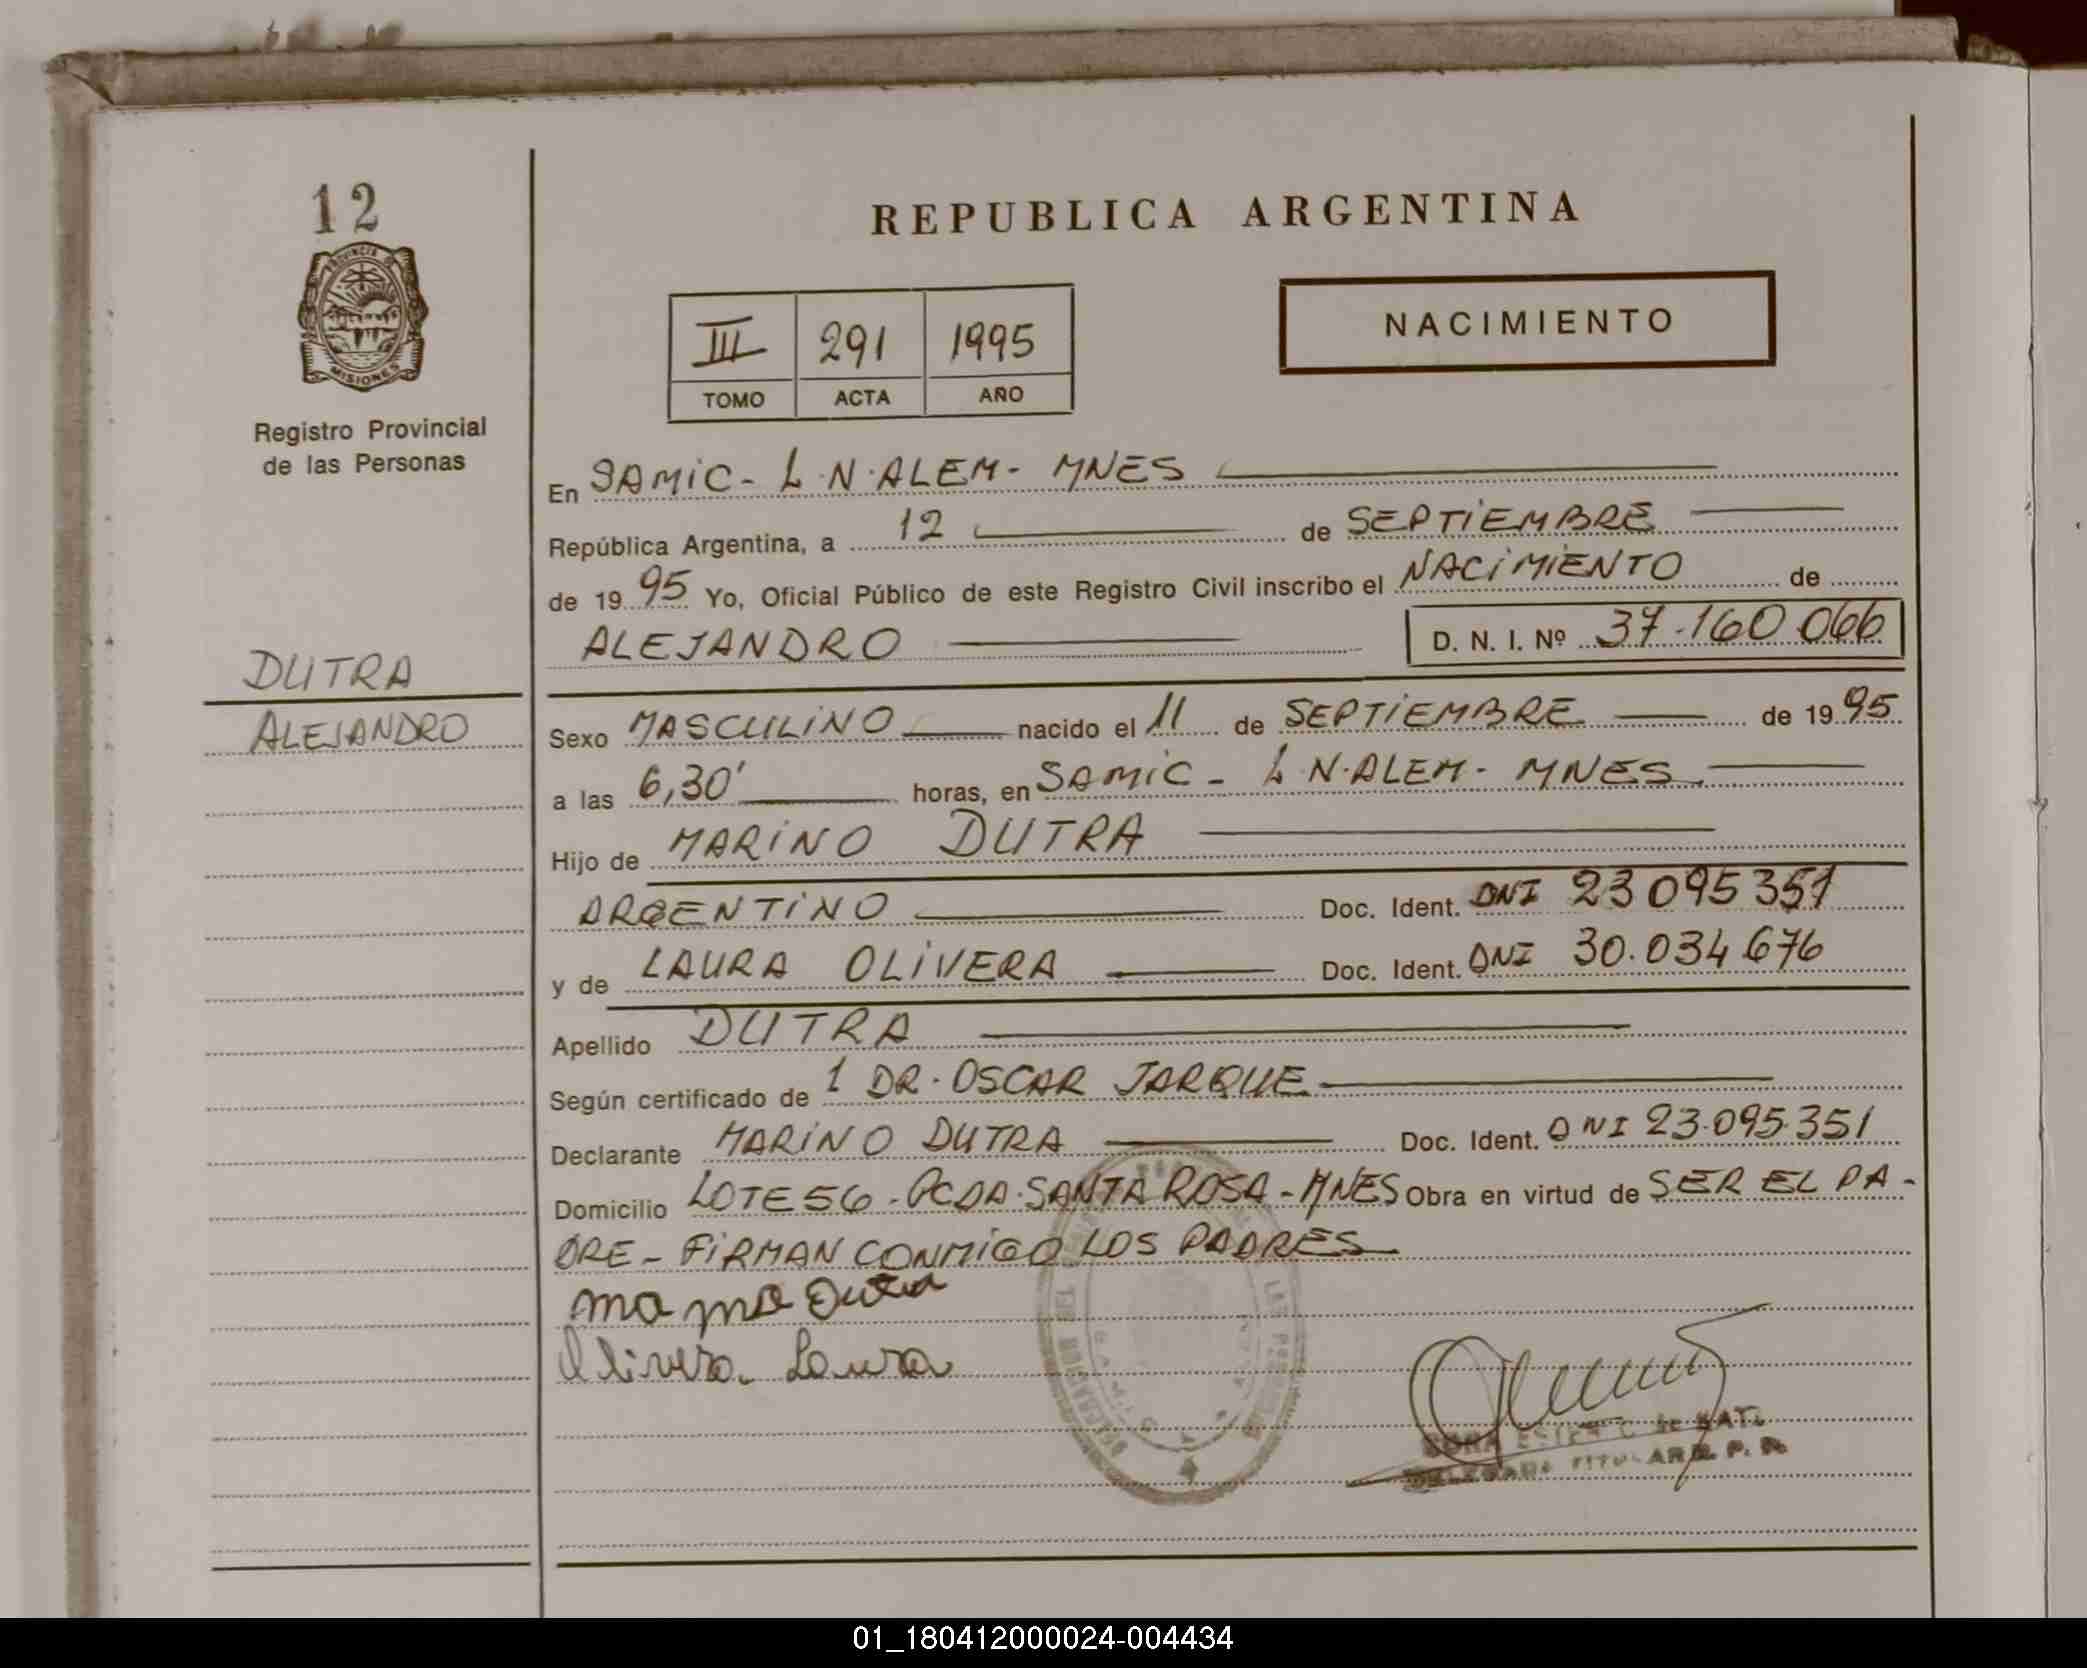 12
PROVINCIA DE
MISIONES
Registro Provincial
de las Personas
DUTRA
ALEJANDRO
REPUBLICA ARGENTINA
III 291 1995
TOMO ACTA AÑO
NACIMIENTO
En SAMIC - L.N.ALEM - MNES
República Argentina, a 12 de SEPTIEMBRE
de 1995 Yo, Oficial Público de este Registro Civil inscribo el NACIMIENTO de
ALEJANDRO D. N. I. Nº 37.160.066
Sexo MASCULINO nacido el 11 de SEPTIEMBRE de 1995
a las 6,30' horas, en SAMIC - L.N.ALEM - MNES
Hijo de MARINO DUTRA
ARGENTINO Doc. Ident. DNI 23095351
y de LAURA OLIVERA Doc. Ident. DNI 30.034.676
Apellido DUTRA
Según certificado de 1 DR. OSCAR JARQUE
Declarante MARINO DUTRA Doc. Ident. DNI 23.095.351
Domicilio LOTE 56 - PCDA. SANTA ROSA - MNES Obra en virtud de SER EL PA-
DRE - FIRMAN CONMIGO LOS PADRES
Dutra
Olivera. Laura
TITULAR R. P. P.
01_180412000024-004434